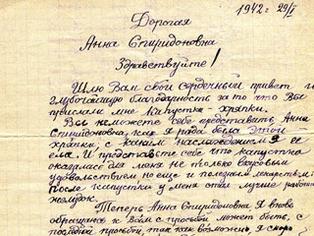 1942 г 29/I
Дорогая
Анна Спиридоновна
Здравствуйте!
Шлю Вам свой сердечный привет и
глубочайшую благодарность за то что Вы
прислали мне капусты-хряпки.
Вы не можете себе представить, Анна
Спиридоновна, как я рада была этой
хряпки, с каким наслаждением я её
ела. И представьте себе что капуста
оказалась для меня не только вкусовым
удовольствием но еще и полезным лекарством
после капустки у меня стал лучше работать
желудок.
Теперь Анна Спиридоновна Я вновь
обращаюсь к Вам с просьбой может быть, с
последней просьбой, так как возможно, я скоро